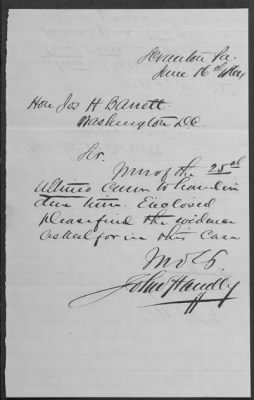 Scranton Pa.
June 16th
Hon Jos H Barrett
Washington D.C.
Sir.
Yours of the 25th
Ultimo Came to hand in
due time. Enclosed
please find the evidence
asked for in this Case
John Handley